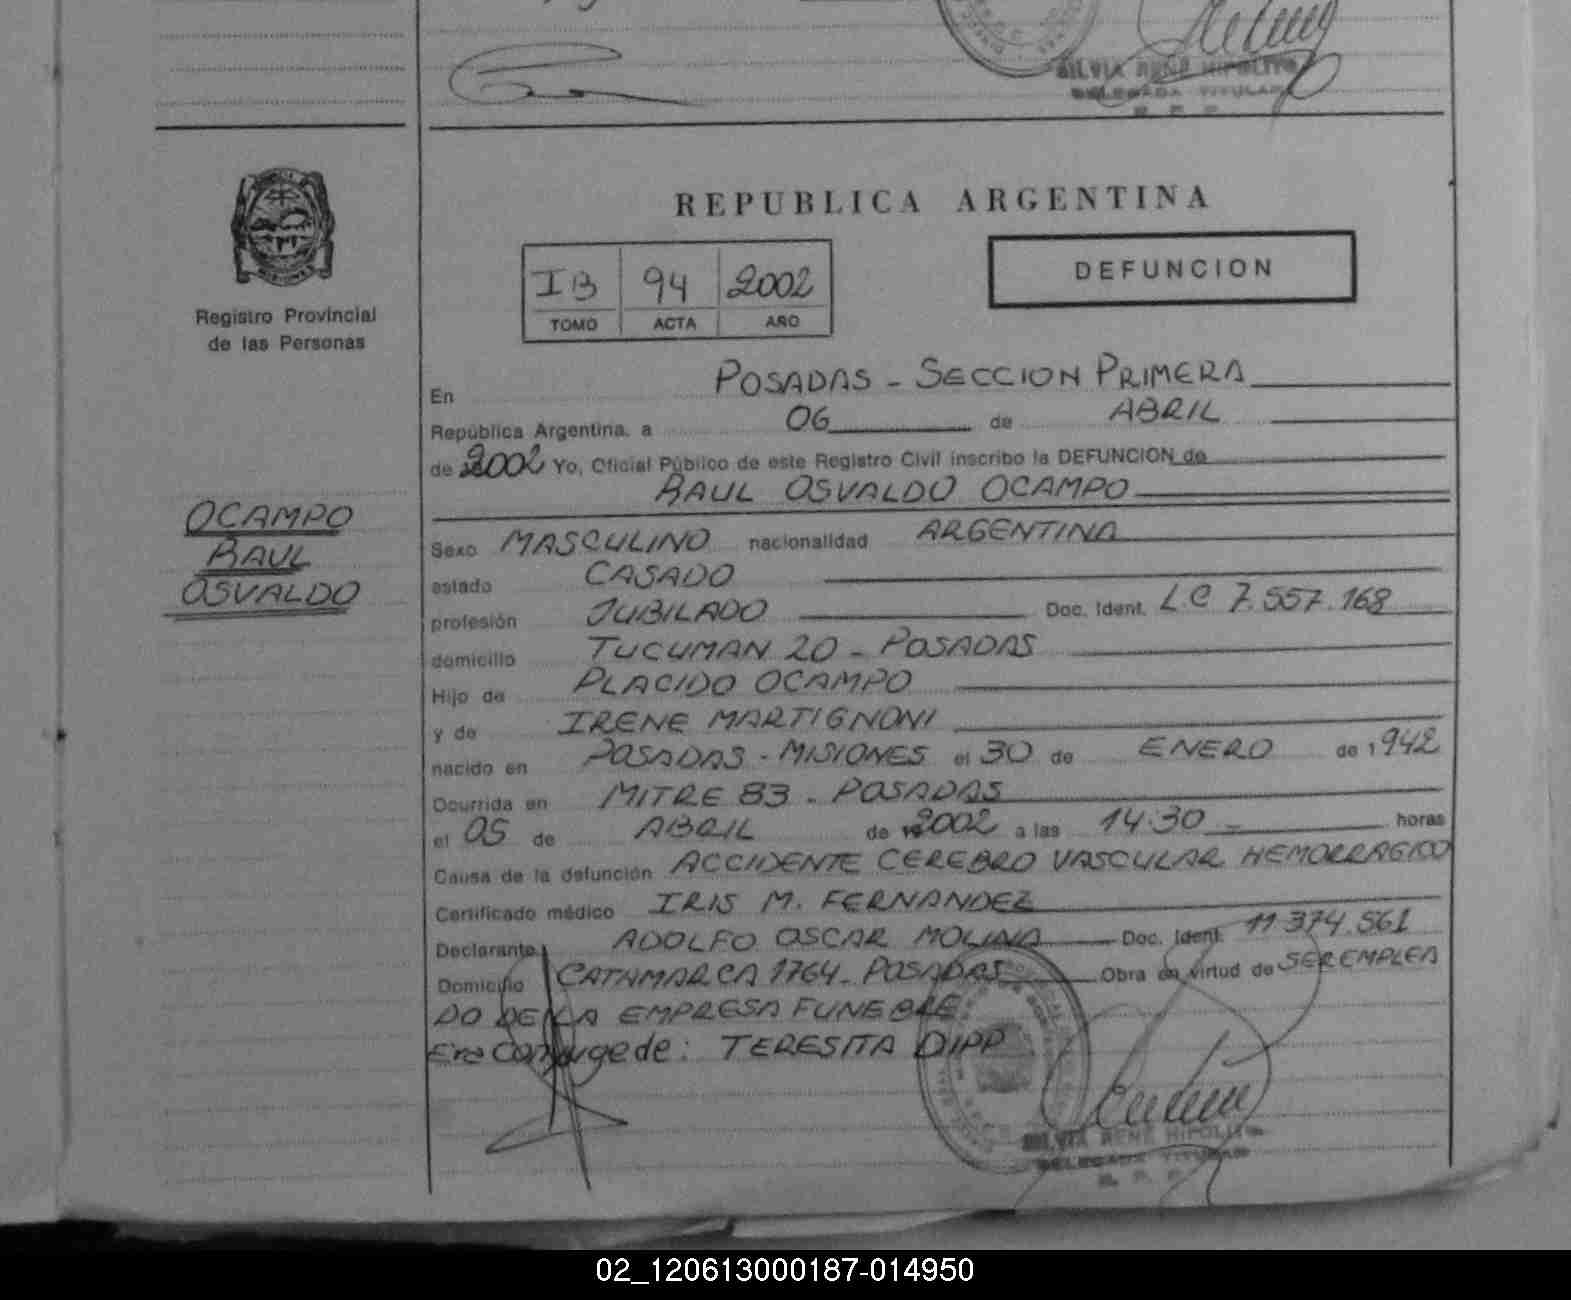 SILVIA RENE HIPOLITO
DELEGADA TITULAR
R. P. P.
Registro Provincial
de las Personas
OCAMPO
RAUL
OSVALDO
REPUBLICA ARGENTINA
IB 94 2002
TOMO ACTA AÑO
DEFUNCION
En POSADAS - SECCION PRIMERA
República Argentina, a 06 de ABRIL
de 2002 Yo, Oficial Público de este Registro Civil inscribo la DEFUNCION de
RAUL OSVALDO OCAMPO
Sexo MASCULINO nacionalidad ARGENTINA
estado CASADO
profesión JUBILADO Doc. Ident. L.C 7.557.168
domicilio TUCUMAN 20 - POSADAS
Hijo de PLACIDO OCAMPO
y de IRENE MARTIGNONI
nacido en POSADAS - MISIONES el 30 de ENERO de 1942
Ocurrida en MITRE 83 - POSADAS
el 05 de ABRIL de 2002 a las 14:30 horas
Causa de la defunción ACCIDENTE CEREBRO VASCULAR HEMORRAGICO
Certificado médico IRIS M. FERNANDEZ
Declarante ADOLFO OSCAR MOLINA Doc. Ident. 11.374.561
Domicilio CATAMARCA 1764 - POSADAS Obra en virtud de SER EMPLEA
DO DE LA EMPRESA FUNEBRE
Era Conyuge de: TERESITA DIPP
SILVIA RENE HIPOLITO
DELEGADA TITULAR
R. P. P.
02_120613000187-014950